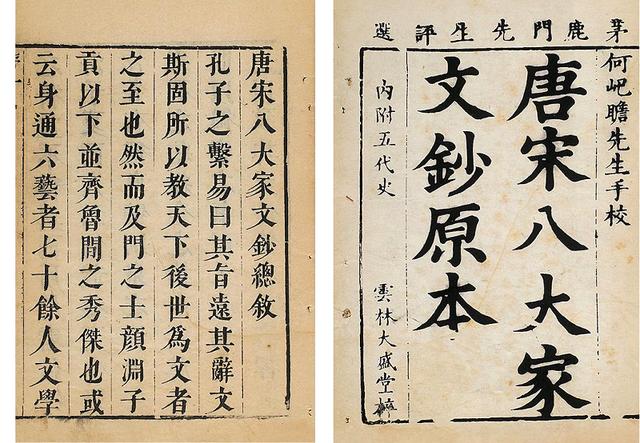 茅鹿門先生評選
何屺瞻先生手校
唐宋八大家
文鈔原本
內附五代史
雲林大盛堂梓
唐宋八大家文鈔總敘
孔子之繫易曰其旨遠其辭文
斯固所以教天下後世爲文者
之至也然而及門之士顏淵子
貢以下並齊魯間之秀傑也或
云身通六藝者七十餘人文學